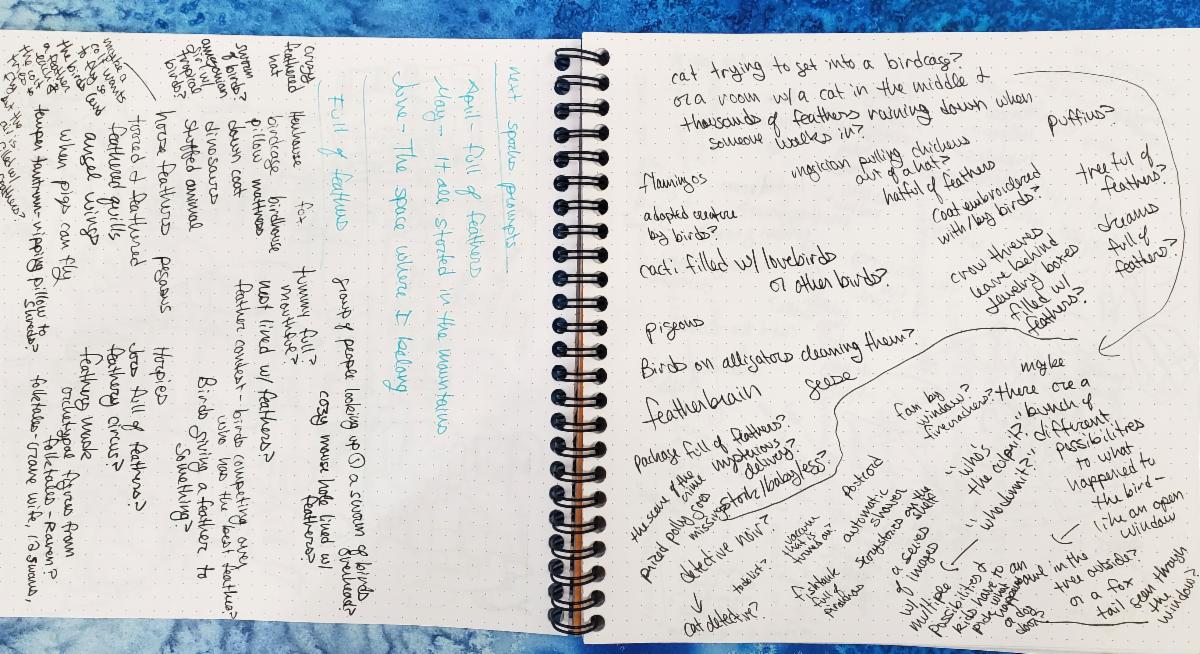 next spooks prompts
April - full of feathers
May - It all started in the mountains
June - The space where I belong
Full of feathers
crazy
feathered
hat
swarm
of birds?
amazonian
girl w/
tropical
birds?
Henhouse
fox
birdcage
birdhouse
pillow
mattress
down coat
dinosaurs
stuffed animal
horse feathers
pegasus
tarred & feathered
feathered quills
angel wings
when pigs can fly
temper tantrum - ripping pillow to
shreds?
group of people looking up @ a swarm of birds
overhead?
tummy full?
mouthful?
cozy mouse hole lined w/
feathers?
nest lined w/ feathers?
feather contest - birds competing over
who has the best feather?
Birds giving a feather to
something?
Harpies
Jars full of feathers?
feathery circus?
feathery mask
archetypal figures from
folktales - Raven?
folktales - crane wife, 12 swans,
maybe a
the birds
a feather
the cat
tries
cat trying to get into a birdcage?
or a room w/ a cat in the middle &
thousands of feathers raining down when
someone walks in?
puffins?
magician pulling chickens
out of a hat?
hatful of feathers
flamingos
adopted creature
by birds?
coat embroidered
with/by birds?
tree full of
feathers?
dreams
full of
feathers?
cacti filled w/ lovebirds
or other birds?
crow thieves
leave behind
jewelry boxes
filled w/
feathers?
pigeons
Birds on alligators cleaning them?
featherbrain
geese
package full of feathers?
mysterious
delivery?
stork/baby/egg?
the scene of the
crime
prized polly goes
missing
detective noir?
cat detective?
todolist?
vacuum
that is
turned on?
fishtank
full of
piranhas
postcard
automatic
shaver
scrygators on the
shelf
fan by
window?
firecrackers?
"who's
the culprit?"
"whodunnit?"
a series
of images
w/
multiple
possibilities &
kids have to
pick what
happened
maybe
there are a
bunch of
different
possibilities
to what
happened to
the bird -
like an open
window
an owl in the
tree outside?
or a fox
tail seen through
the window?
a dog
door?